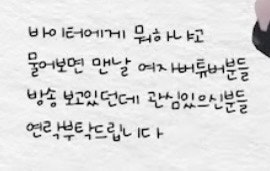 바이터에게 뭐하냐고
물어보면 맨날 여자버튜버분들
방송 보고있던데 관심있으신분들
연락부탁드립니다